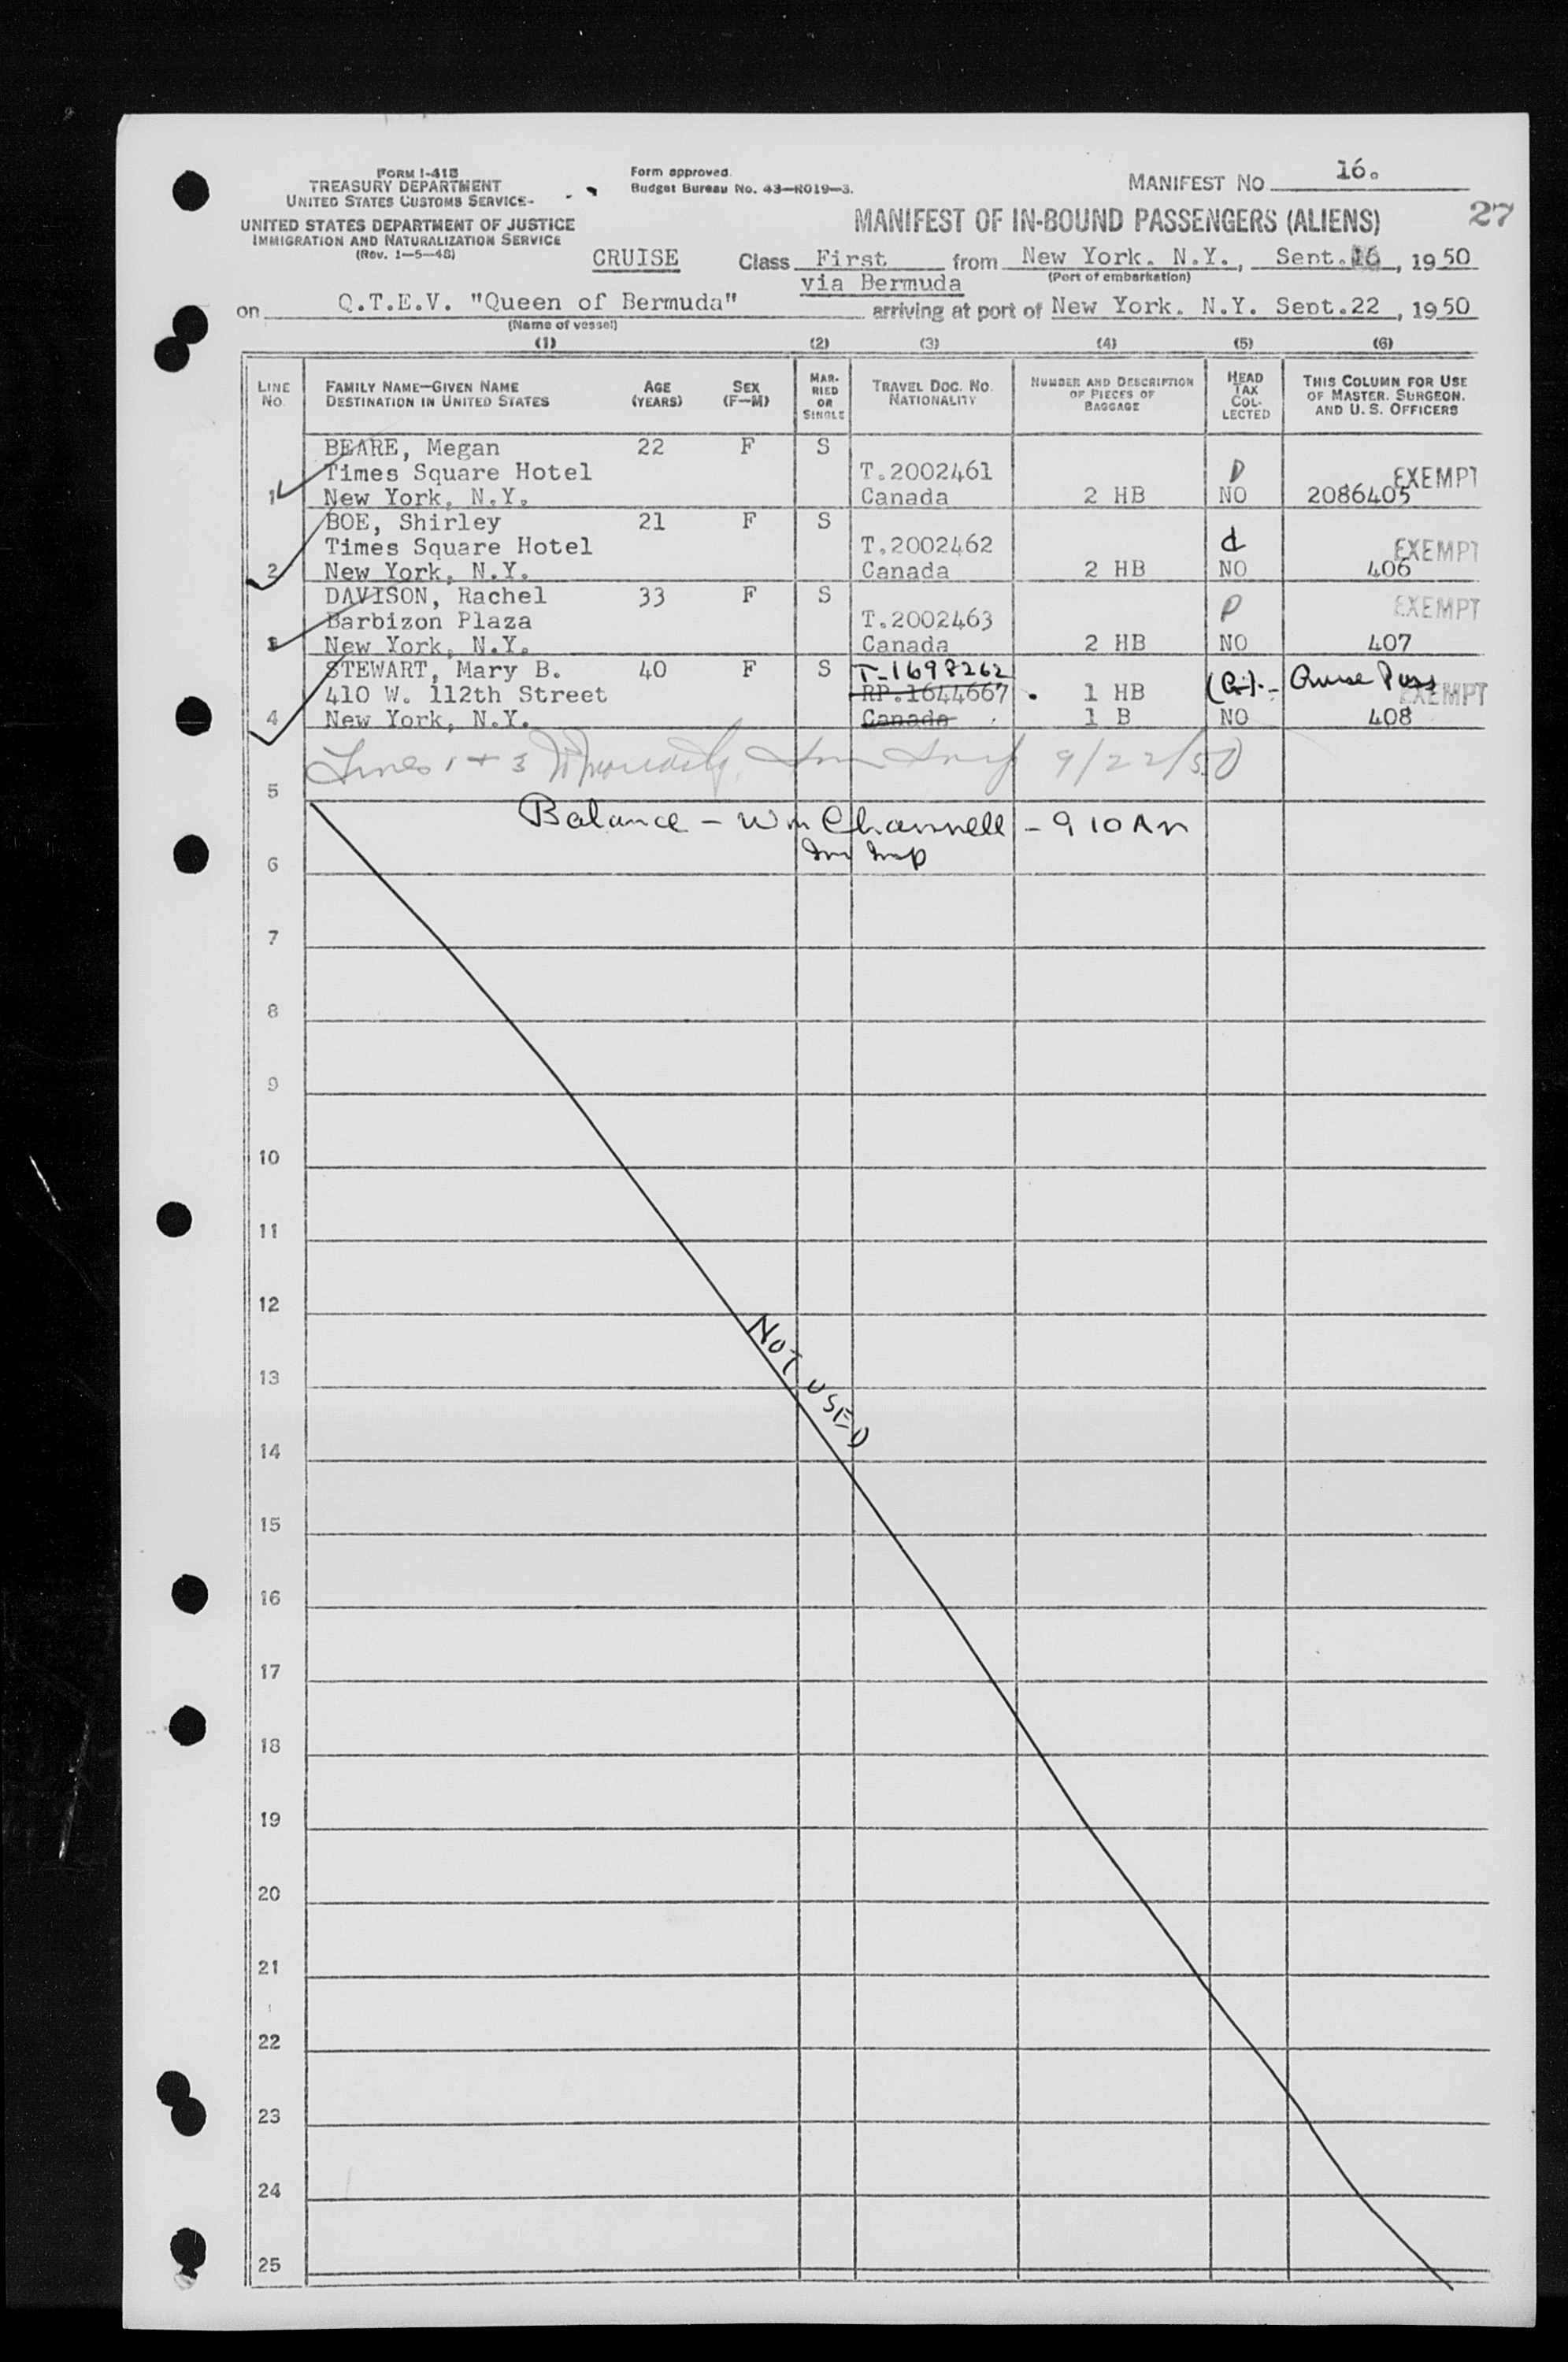 FORM I-41B
TREASURY DEPARTMENT
UNITED STATES CUSTOMS SERVICE
UNITED STATES DEPARTMENT OF JUSTICE
IMMIGRATION AND NATURALIZATION SERVICE
(Rev. 1-5-48)
Form approved.
Budget Bureau No. 43-R019-3.
MANIFEST NO. 16.
MANIFEST OF IN-BOUND PASSENGERS (ALIENS) 27
CRUISE Class First from New York. N.Y., Sept.16, 1950
via Bermuda (Port of embarkation)
on Q.T.E.V. "Queen of Bermuda" arriving at port of New York. N.Y. Sept.22, 1950
(Name of vessel)
(1) (2) (3) (4) (5) (6)
LINE NO. FAMILY NAME—GIVEN NAME DESTINATION IN UNITED STATES AGE (YEARS) SEX (F—M) MARRIED OR SINGLE TRAVEL DOC. NO. NATIONALITY NUMBER AND DESCRIPTION OF PIECES OF BAGGAGE HEAD TAX COLLECTED THIS COLUMN FOR USE OF MASTER, SURGEON, AND U. S. OFFICERS
BEARE, Megan 22 F S
Times Square Hotel T.2002461 D EXEMPT
1 New York, N.Y. Canada 2 HB NO 2086405
BOE, Shirley 21 F S
Times Square Hotel T.2002462 d EXEMPT
2 New York, N.Y. Canada 2 HB NO 406
DAVISON, Rachel 33 F S
Barbizon Plaza T.2002463 P EXEMPT
3 New York, N.Y. Canada 2 HB NO 407
STEWART, Mary B. 40 F S T-1698262
410 W. 112th Street RP.1644667 1 HB Cruise Pass EXEMPT
4 New York, N.Y. Canada 1 B NO 408
Lines 1 + 3 Imm Insp 9/22/50
5
Balance - Wm Channell - 9 10 AM
Imm Insp
6
7
8
9
10
11
12
NOT USED
13
14
15
16
17
18
19
20
21
22
23
24
25